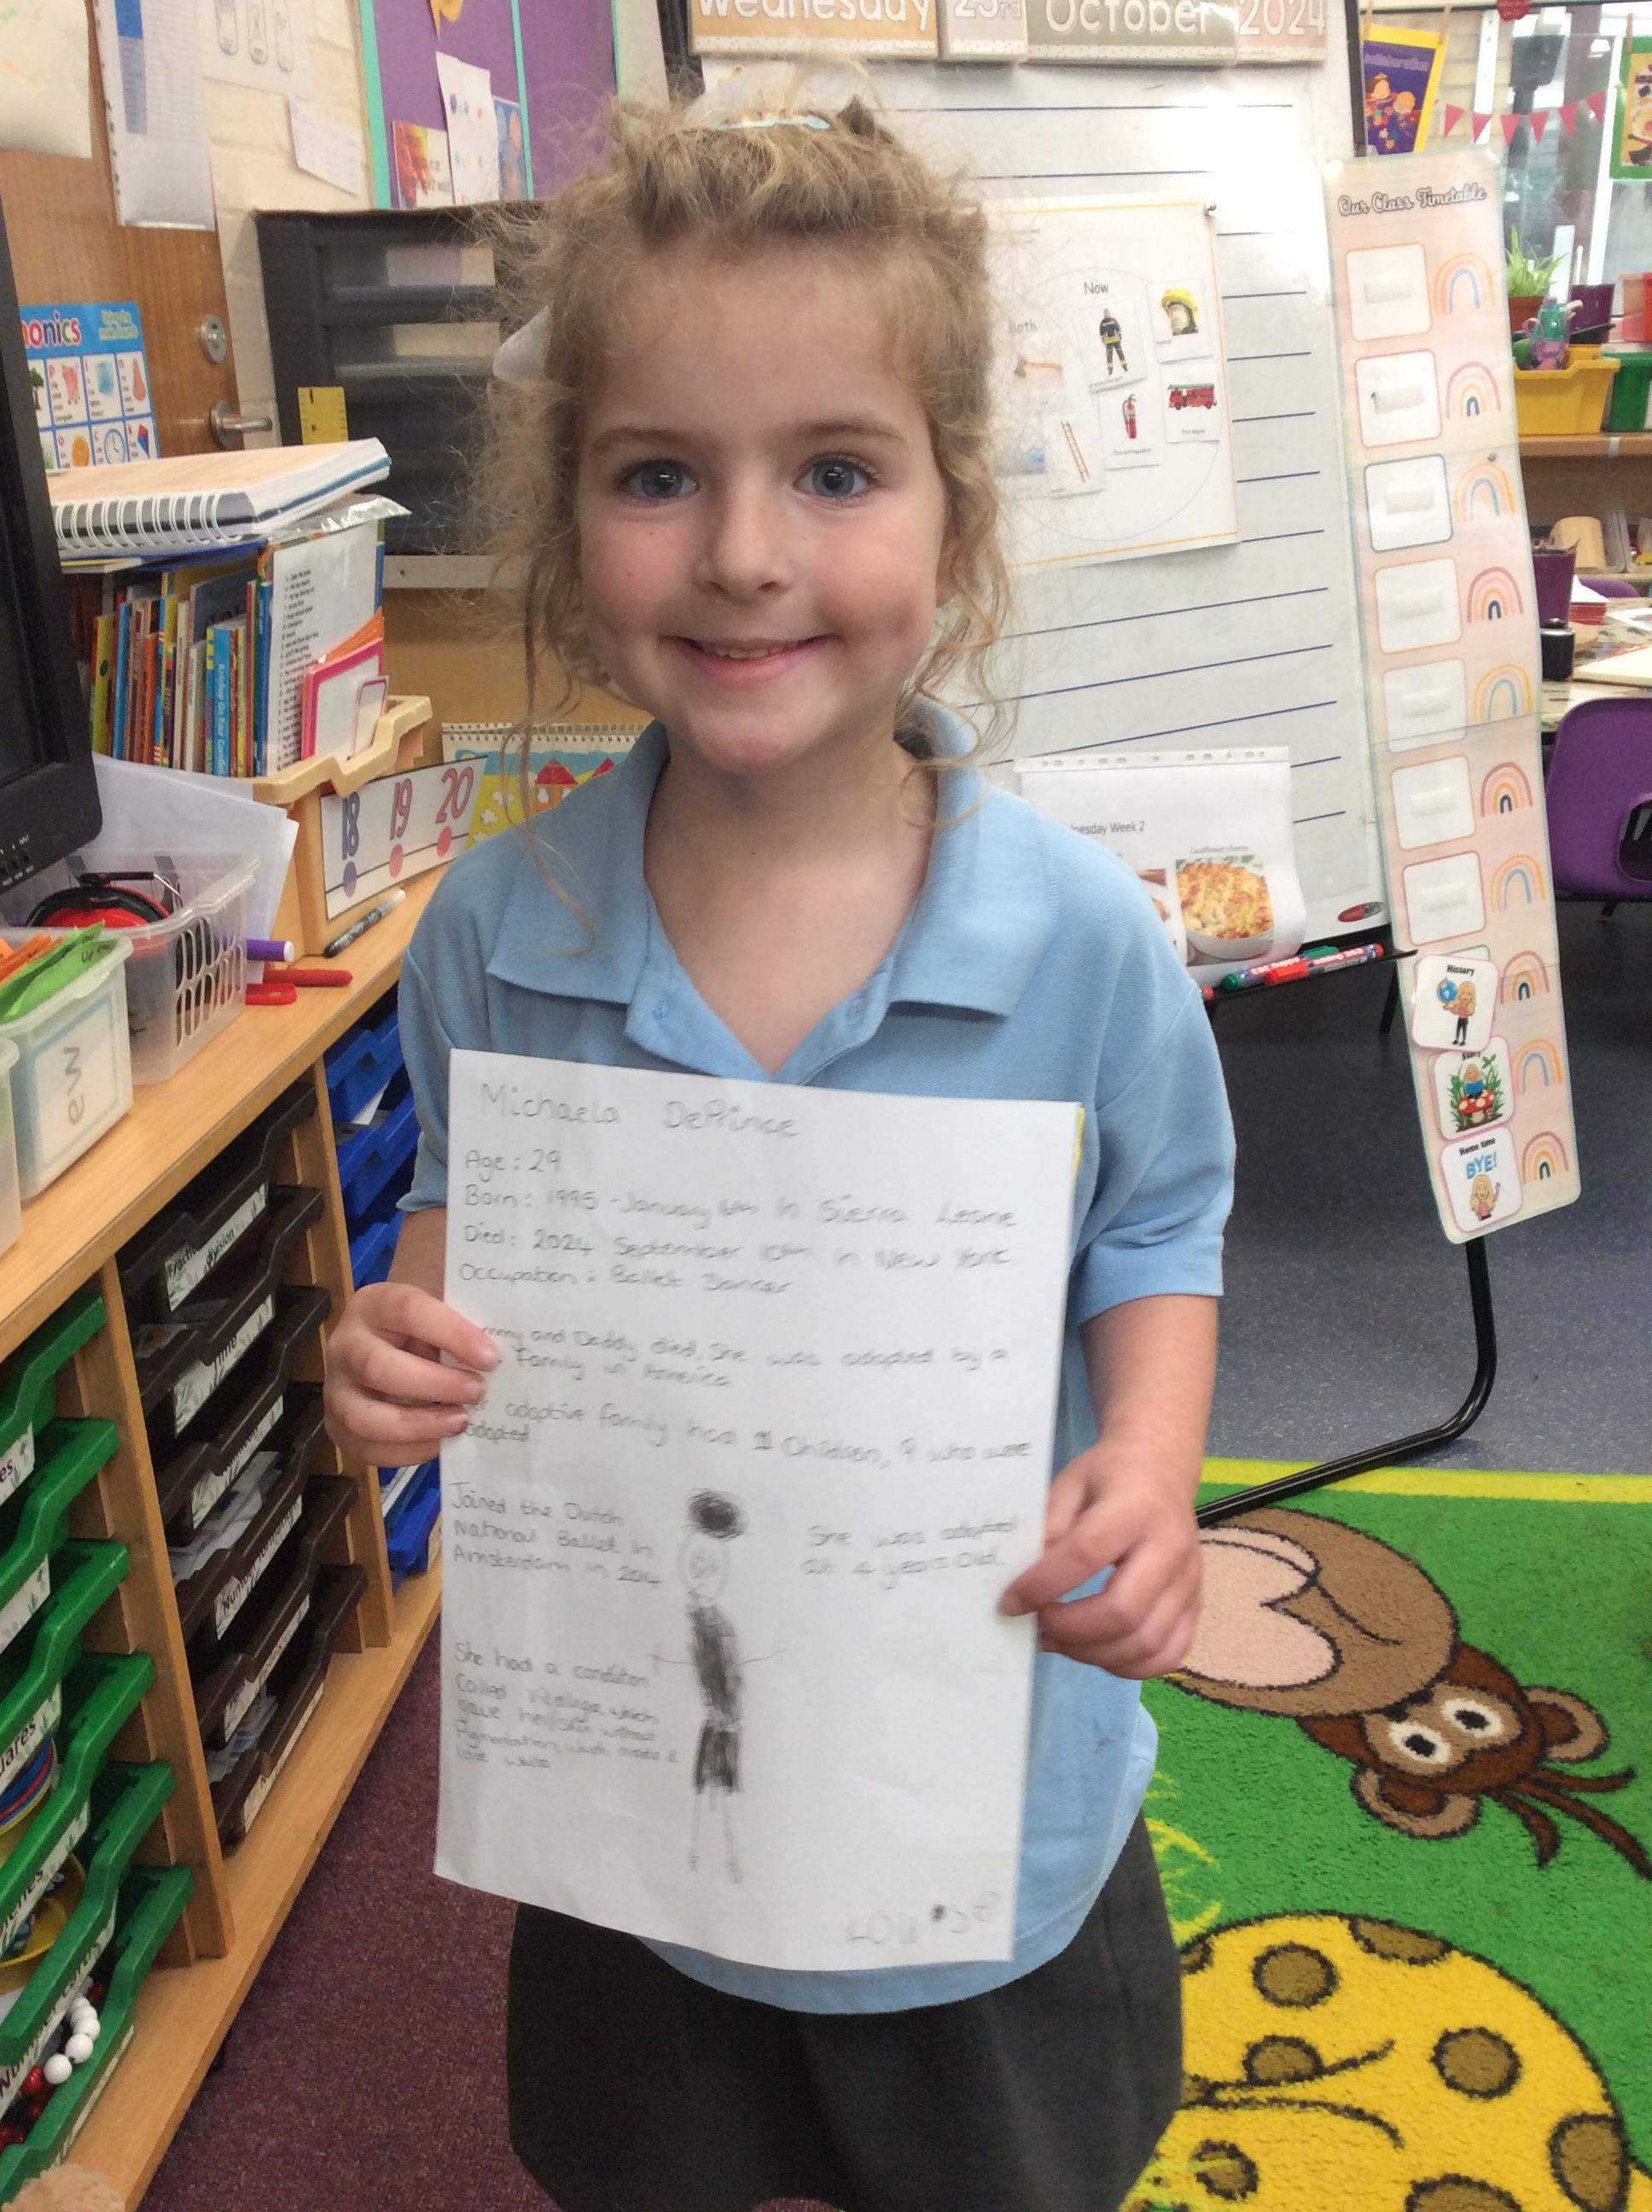 Wednesday 23rd October 2024
Our Class Timetable
onics
Now
oth
fire extinguisher
18 19 20
nesday Week 2
Cauliflower cheese
History
Story
Home time
BYE!
Michaela DePrince
Age: 29
Born: 1995 - January 6th In Sierra Leone
Died: 2024 September 10th in New York
Occupation: Ballet Dancer
mmy and Daddy died, She was adopted by a
Family in America
adoptive family had 11 Children, 9 who were
adopted
Joined the Dutch
National Ballet In
Amsterdam in 2014
She was adopted
at 4 years old.
She had a condition
Called Vitiligo, which
gave her skin without
Pigmentation, which made it
look white
Louise